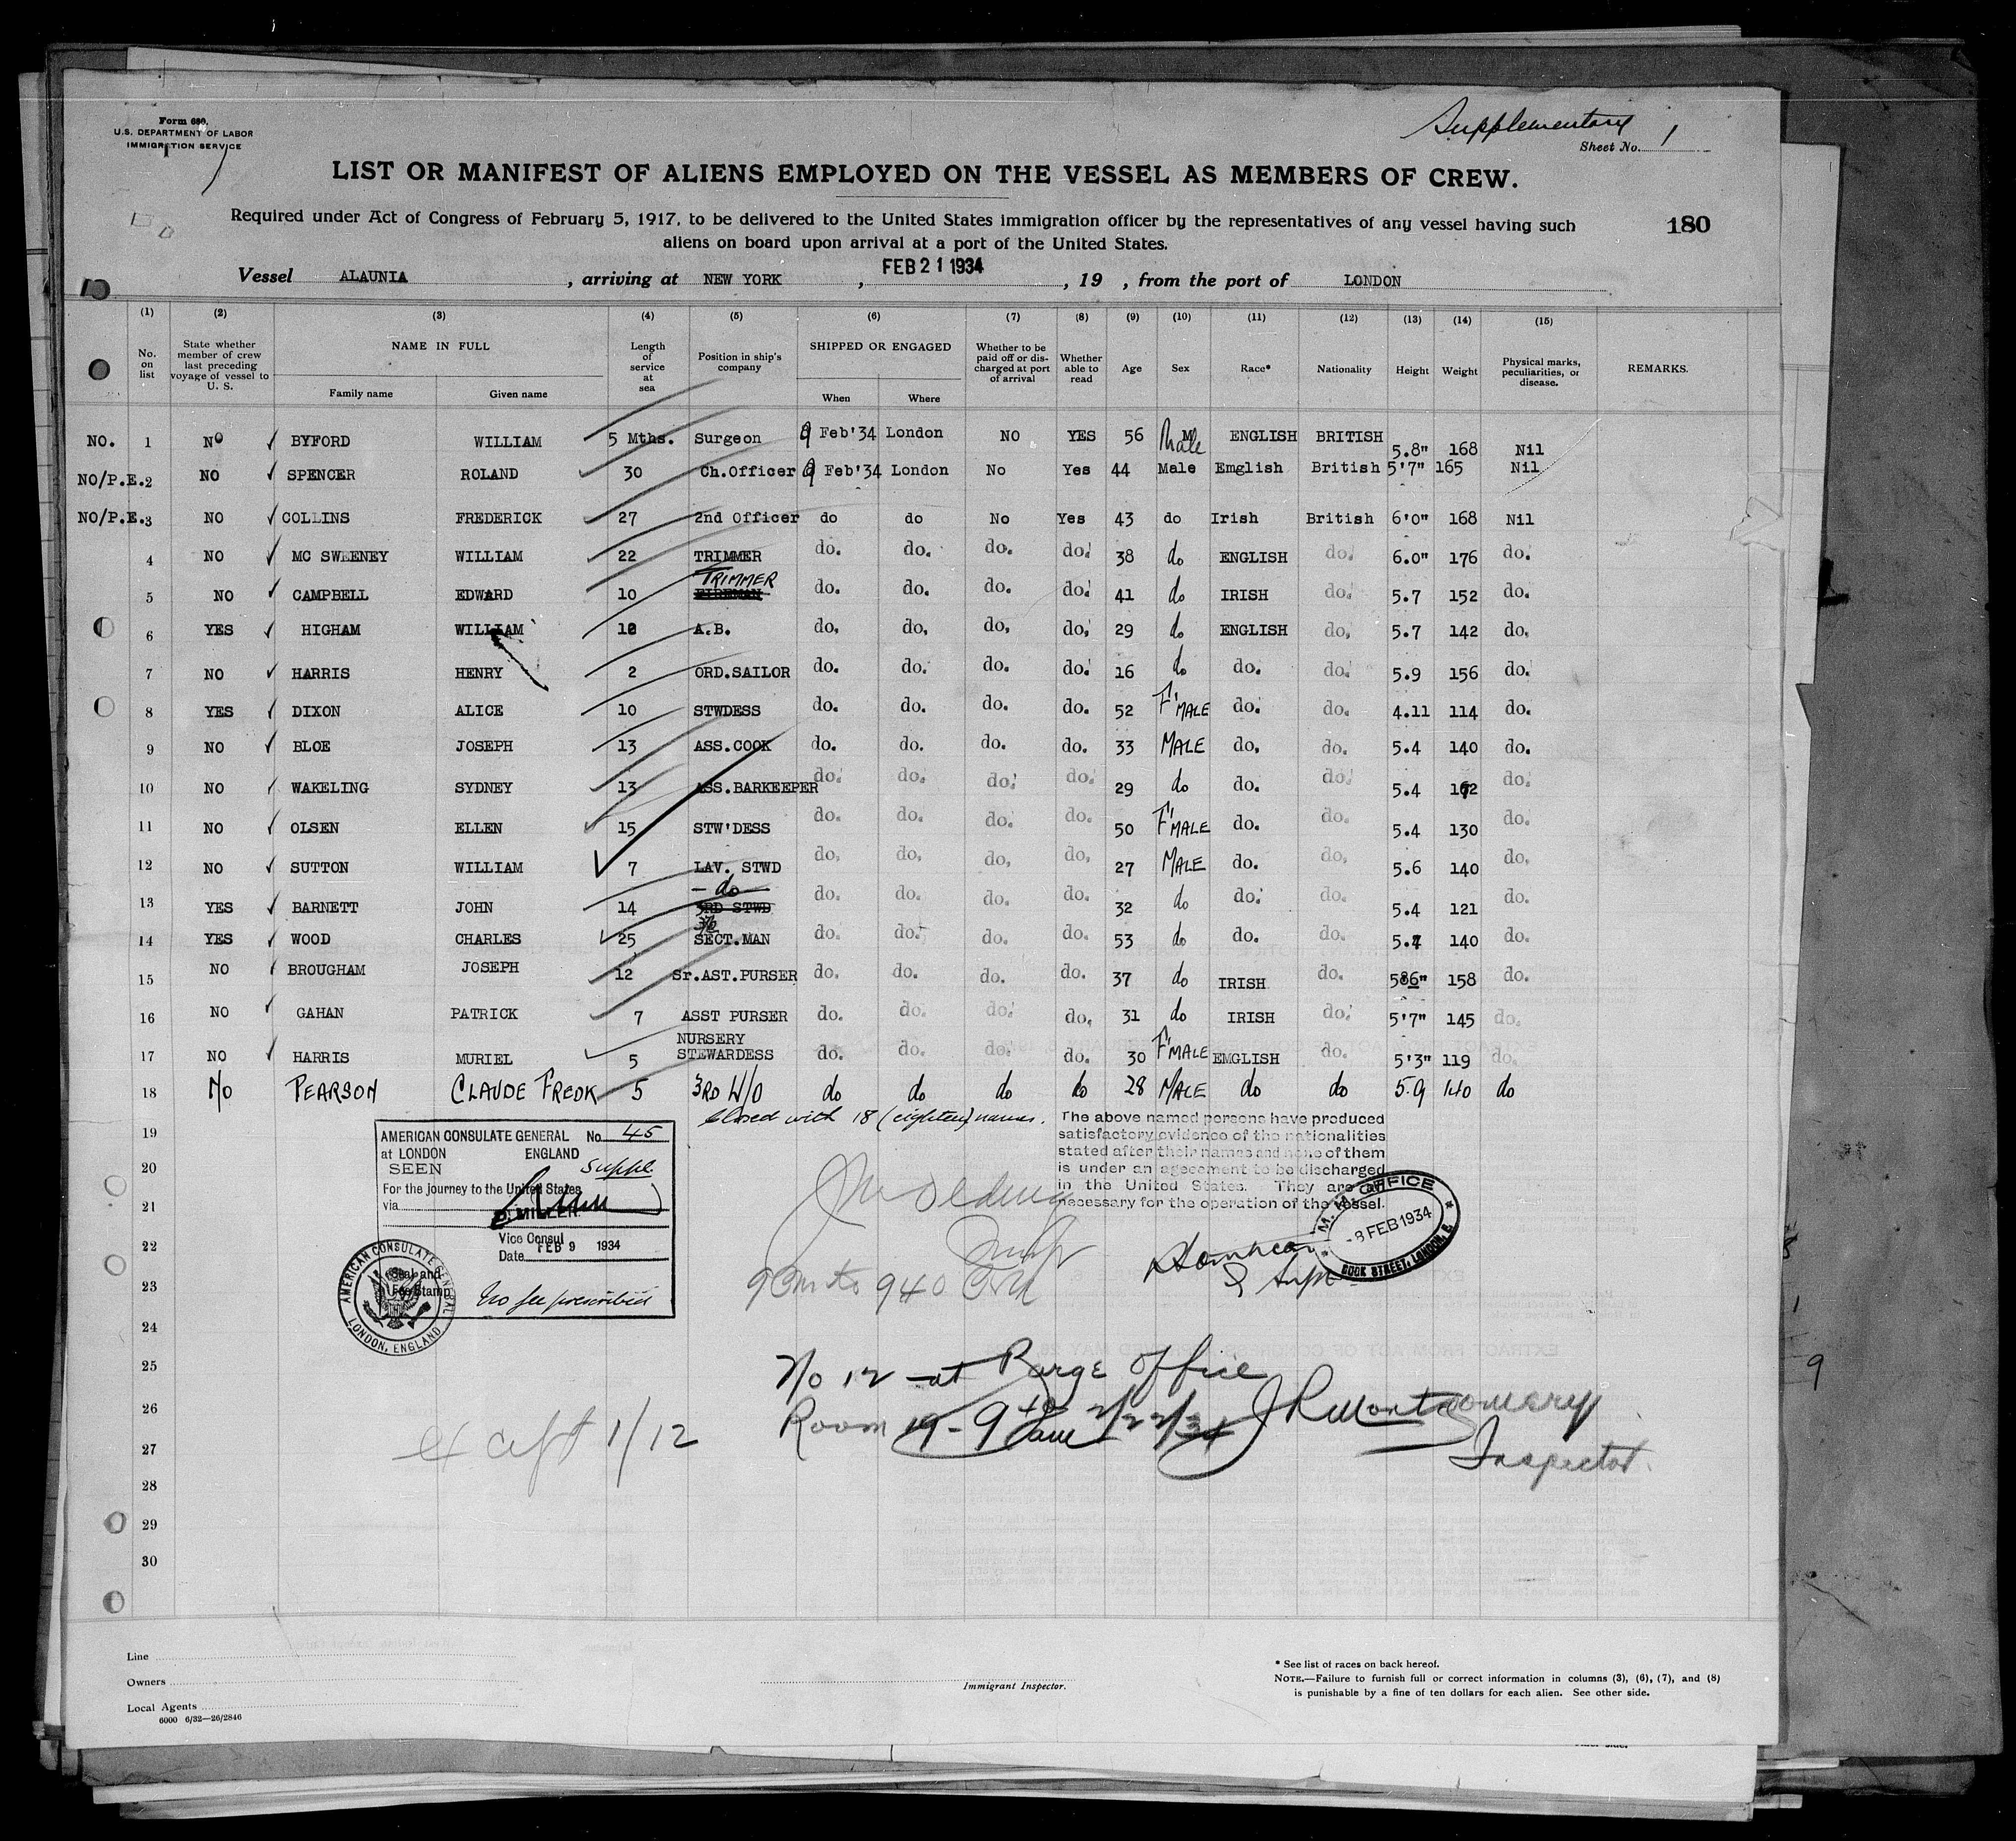 Form 680.
U.S. DEPARTMENT OF LABOR
IMMIGRATION SERVICE
Supplementary
Sheet No. 1
LIST OR MANIFEST OF ALIENS EMPLOYED ON THE VESSEL AS MEMBERS OF CREW.
Required under Act of Congress of February 5, 1917, to be delivered to the United States immigration officer by the representatives of any vessel having such
aliens on board upon arrival at a port of the United States.
180
Vessel ALAUNIA, arriving at NEW YORK, FEB 21 1934, 19 , from the port of LONDON
(1) (2) (3) (4) (5) (6) (7) (8) (9) (10) (11) (12) (13) (14) (15)
No. on list
State whether member of crew last preceding voyage of vessel to U. S.
NAME IN FULL
Family name
Given name
Length of service at sea
Position in ship's company
SHIPPED OR ENGAGED
When
Where
Whether to be paid off or discharged at port of arrival
Whether able to read
Age
Sex
Race*
Nationality
Height
Weight
Physical marks, peculiarities, or disease.
REMARKS.
NO. 1 NO BYFORD WILLIAM 5 Mths. Surgeon 9 Feb'34 London NO YES 56 Male ENGLISH BRITISH 5.8" 168 Nil
NO/P.E. 2 NO SPENCER ROLAND 30 Ch.Officer 9 Feb'34 London No Yes 44 Male Emglish British 5'7" 165 Nil
NO/P.E. 3 NO COLLINS FREDERICK 27 2nd Officer do do No Yes 43 do Irish British 6'0" 168 Nil
4 NO MC SWEENEY WILLIAM 22 TRIMMER do. do. do. do. 38 do ENGLISH do. 6.0" 176 do.
5 NO CAMPBELL EDWARD 10 TRIMMER FIREMAN do. do. do. do. 41 do IRISH do. 5.7 152 do.
6 YES HIGHAM WILLIAM 10 A.B. do. do. do. do. 29 do ENGLISH do. 5.7 142 do.
7 NO HARRIS HENRY 2 ORD.SAILOR do. do. do. do. 16 do do. do. 5.9 156 do.
8 YES DIXON ALICE 10 STWDESS do. do. do. do. 52 F'MALE do. do. 4.11 114 do.
9 NO BLOE JOSEPH 13 ASS.COOK do. do. do. do. 33 MALE do. do. 5.4 140 do.
10 NO WAKELING SYDNEY 13 ASS.BARKEEPER do. do. do. do. 29 do do. do. 5.4 do.
11 NO OLSEN ELLEN 15 STW'DESS do. do. do. do. 50 F'MALE do. do. 5.4 130 do.
12 NO SUTTON WILLIAM 7 LAV. STWD do. do. do. do. 27 MALE do. do. 5.6 140 do.
13 YES BARNETT JOHN 14 - do - 3RD STWD do. do. do. do. 32 do do. do. 5.4 121 do.
14 YES WOOD CHARLES 25 SECT.MAN do. do. do. do. 53 do do. do. 5.4 140 do.
15 NO BROUGHAM JOSEPH 12 Sr.AST.PURSER do. do. do. do. 37 do IRISH do. 158 do.
16 NO GAHAN PATRICK 7 ASST PURSER do. do. do. do. 31 do IRISH do. 5'7" 145 do.
17 NO HARRIS MURIEL 5 NURSERY STEWARDESS do. do. do. do. 30 F'MALE EMGLISH do. 5'3" 119 do.
18 No PEARSON CLAUDE FREDK 5 3RD W/O do do do do 28 MALE do do 5.9 140 do
Closed with 18 (eighteen) names.
The above named persons have produced
satisfactory evidence of the nationalities
stated after their names and none of them
is under an agreement to be discharged
in the United States. They are all
necessary for the operation of the vessel.
19
20
21
22
23
24
25
26
27
28
29
30
AMERICAN CONSULATE GENERAL No. 45
at LONDON ENGLAND
SEEN Suppl.
For the journey to the United States
via
D. MILLER
Vice Consul
Date FEB 9 1934
Seal and
Fee Stamp
No fee prescribed
AMERICAN CONSULATE GENERAL
LONDON, ENGLAND
M. M. OFFICE
-8 FEB 1934
DOCK STREET, LONDON, E.
No 12 at Barge Office
Room 19 - 9 am 2/22/34 J R Montgomery
Inspector.
1/12
Line
Owners
Local Agents
6000 6/32—26/2846
Immigrant Inspector.
* See list of races on back hereof.
NOTE.—Failure to furnish full or correct information in columns (3), (6), (7), and (8)
is punishable by a fine of ten dollars for each alien. See other side.
9